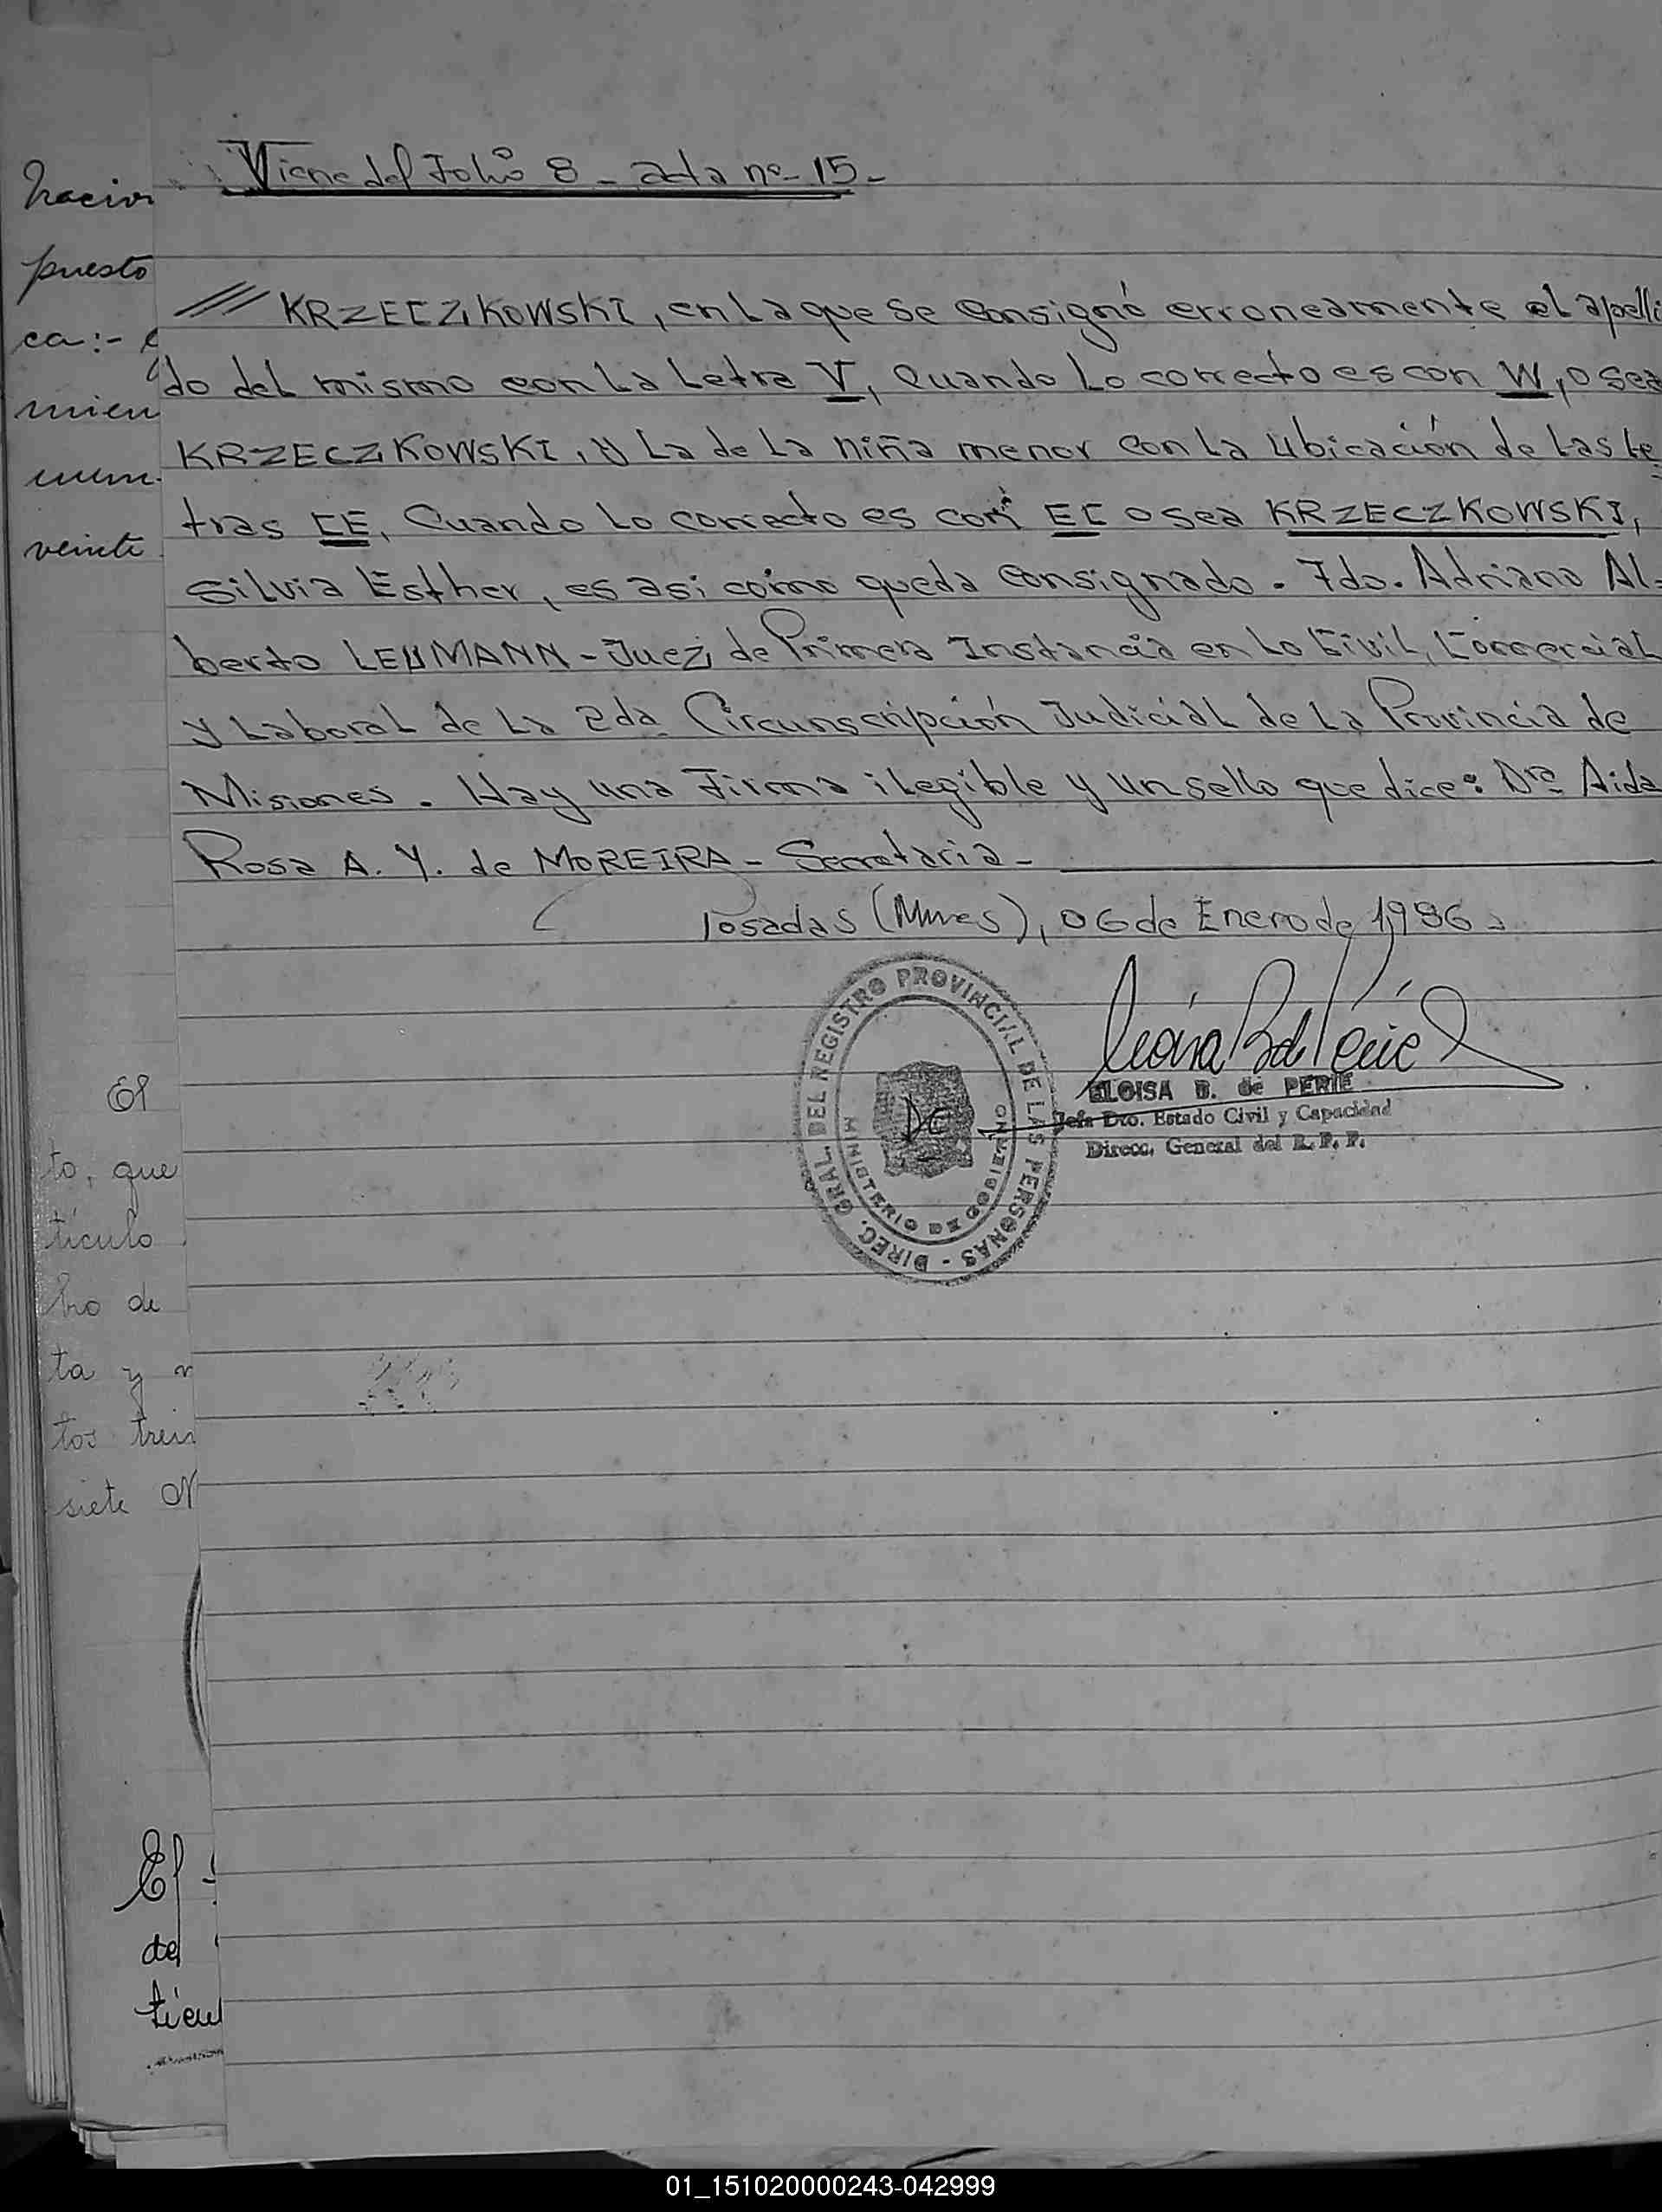 Viene del Folio 8 - acta nº 15 -
/// KRZECZKOWSKI, en la que se consignó erroneamente el apelli
do del mismo con la letra V, Cuando lo correcto es con W, o sea
KRZECZKOWSKI, y la de la niña menor con la ubicación de las le
tras CE, Cuando lo correcto es con EC o sea KRZECZKOWSKI,
Silvia Esther, es asi como queda consignado. Fdo. Adriano Al=
berto LEUMANN - Juez de Primera Instancia en lo Civil, Comercial
y Laboral de la 2da Circunscripción Judicial de la Provincia de
Misiones. Hay una Firma ilegible y un sello que dice: Dra Aida
Rosa A. Y. de MOREIRA - Secretaria -
Posadas (Mnes), 06 de Enero de 1986.
DIREC. GRAL. DEL REGISTRO PROVINCIAL DE LAS PERSONAS -
MINISTERIO DE GOBIERNO
ELOISA B. de PERIE
Jefa Dto. Estado Civil y Capacidad
Direcc. General del R. P. P.
nacim
puesto
ca:-
mien
num
veinte
El
to, que
tículo
ho de
ta y n
tos trein
siete N
El
del
ticul
01_151020000243-042999